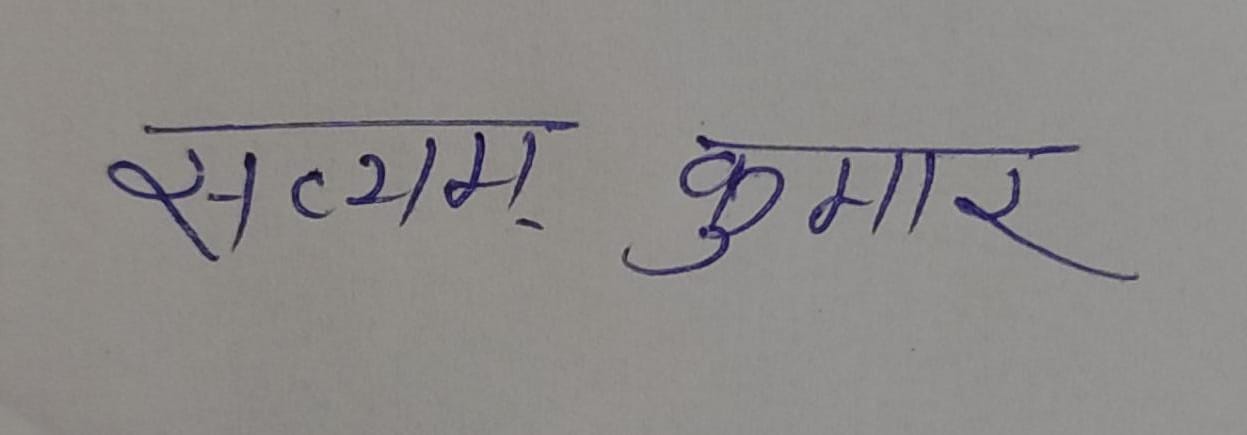 सत्यम् कुमार